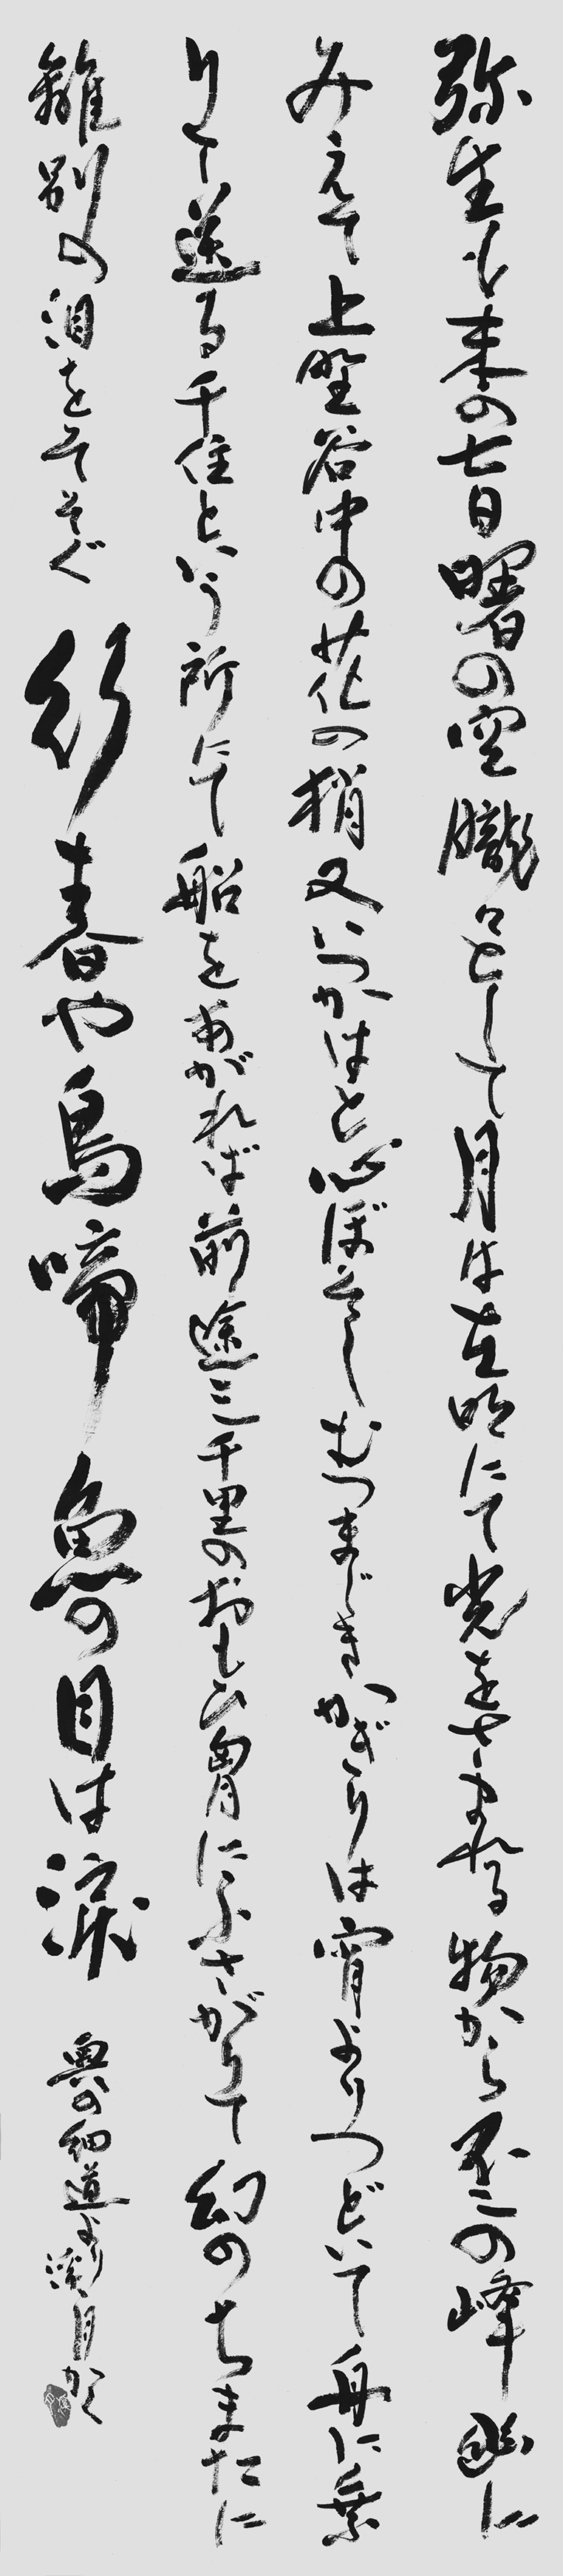 弥生も末の七日曙の空朧々として月は在明にて光をさまれる物から不二の峰幽に
みえて上野谷中の花の梢又いつかはと心ぼそしむつまじきかぎりは宵よりつどいて舟に乗
りて送る千住という所にて船をあがれば前途三千里のおもひ胸にふさがりて幻のちまたに
離別の泪をそそぐ 行春や鳥啼魚の目は涙 奥の細道より 月かく